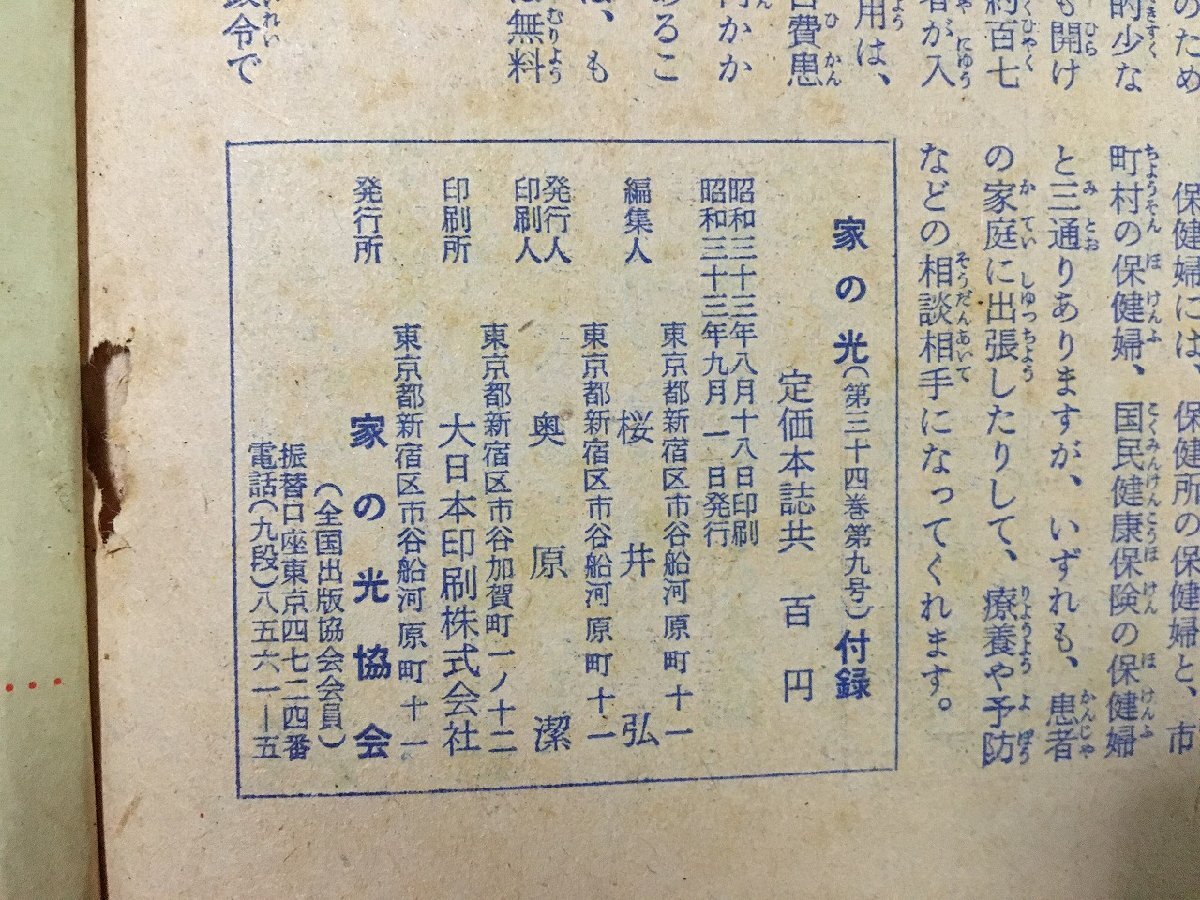 のため
的少な
も開け
約百七
者が入
用は、
自費患
何かか
あるこ
は、も
は無料
政令で
保健婦には、保健所の保健婦と、市
町村の保健婦、国民健康保険の保健婦
と三通りありますが、いずれも、患者
の家庭に出張したりして、療養や予防
などの相談相手になってくれます。
家の光(第三十四巻第九号)付録
定価本誌共 百円
昭和三十三年八月十八日印刷
昭和三十三年九月一日発行
東京都新宿区市谷船河原町十一
編集人 桜井弘
東京都新宿区市谷船河原町十一
発行人
印刷人 奥原潔
東京都新宿区市谷加賀町一ノ十二
印刷所 大日本印刷株式会社
東京都新宿区市谷船河原町十一
発行所 家の光協会
(全国出版協会会員)
振替口座東京四七二四番
電話(九段)八五六一―五